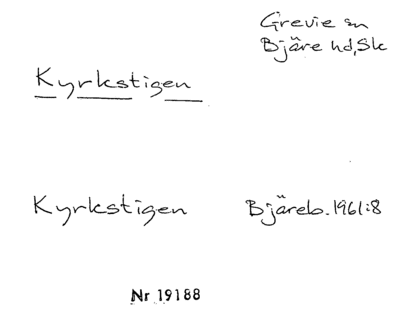 Grevie sn
Bjäre hd, Sk
Kyrkstigen
Kyrkstigen Bjäreb. 1961:8
Nr 19188